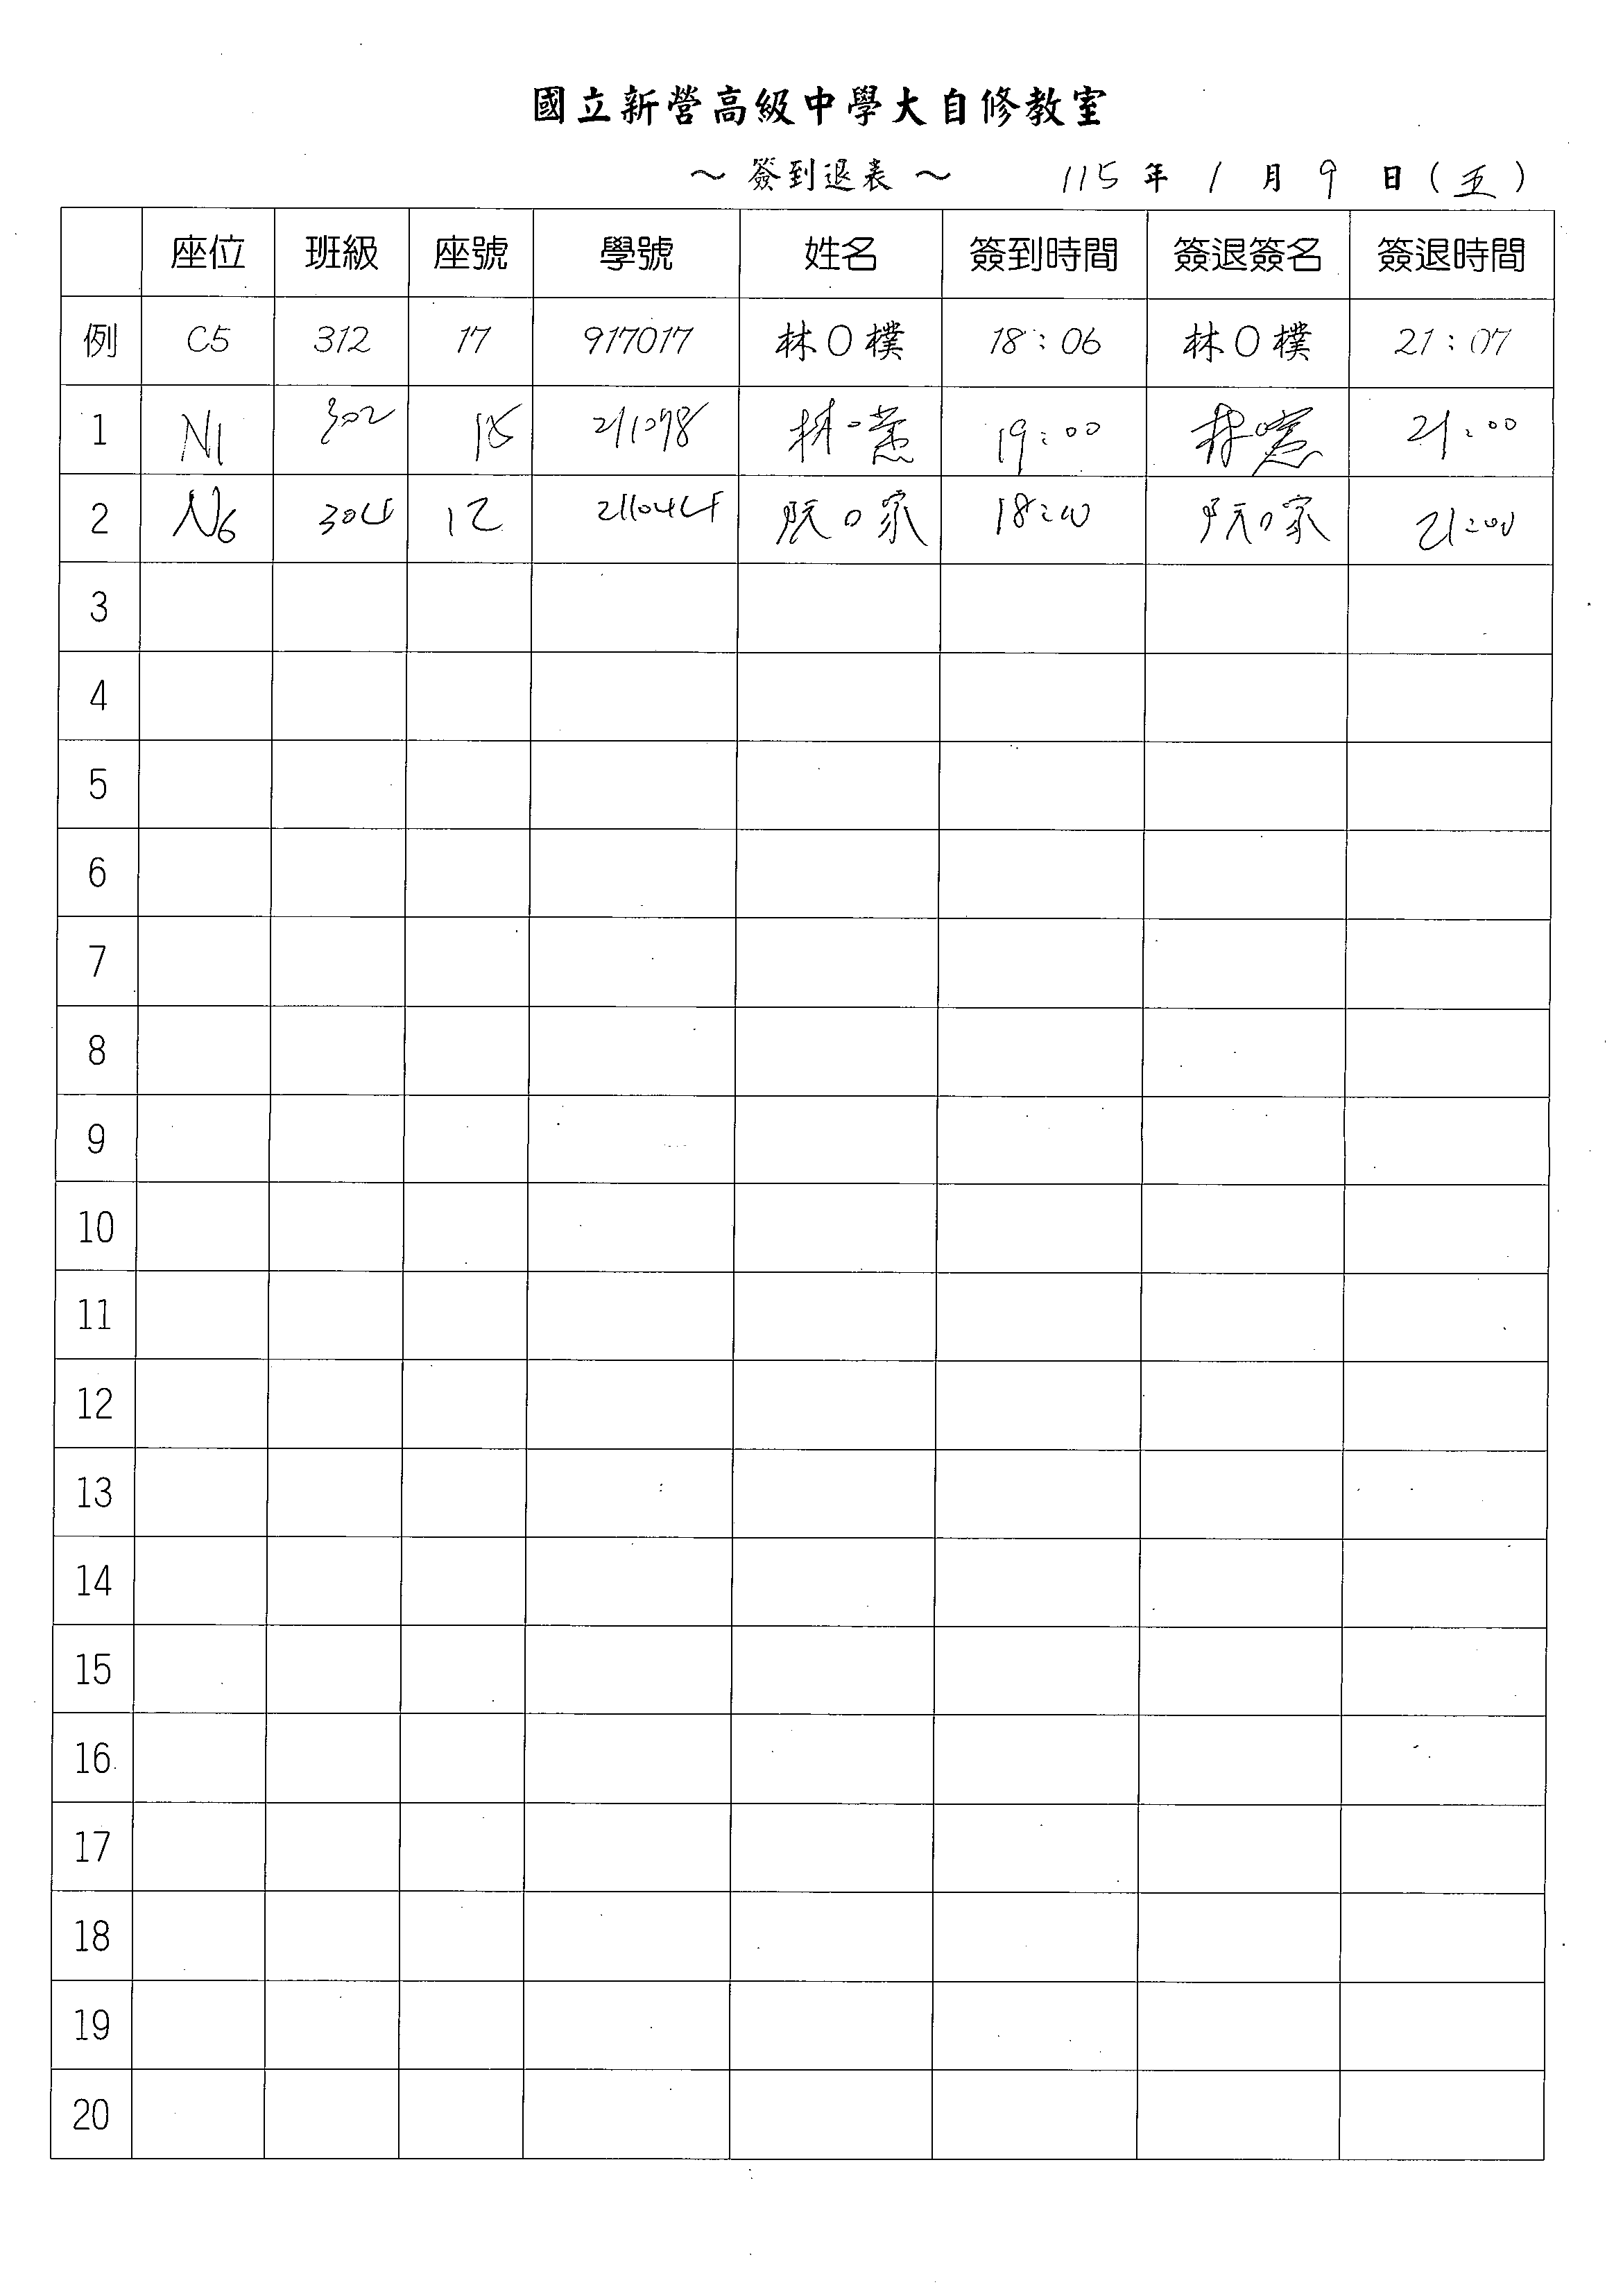 國立新營高級中學大自修教室
～ 簽到退表 ～ 115 年 1 月 9 日 ( 五 )
座位 班級 座號 學號 姓名 簽到時間 簽退簽名 簽退時間
例 C5 312 17 917017 林O樸 18：06 林O樸 21：07
1 N1 302 18 211098 林O 19:00 林O 21:00
2 N6 304 12 211044 阮O家 18:00 阮O家 21:00
3
4
5
6
7
8
9
10
11
12
13
14
15
16
17
18
19
20